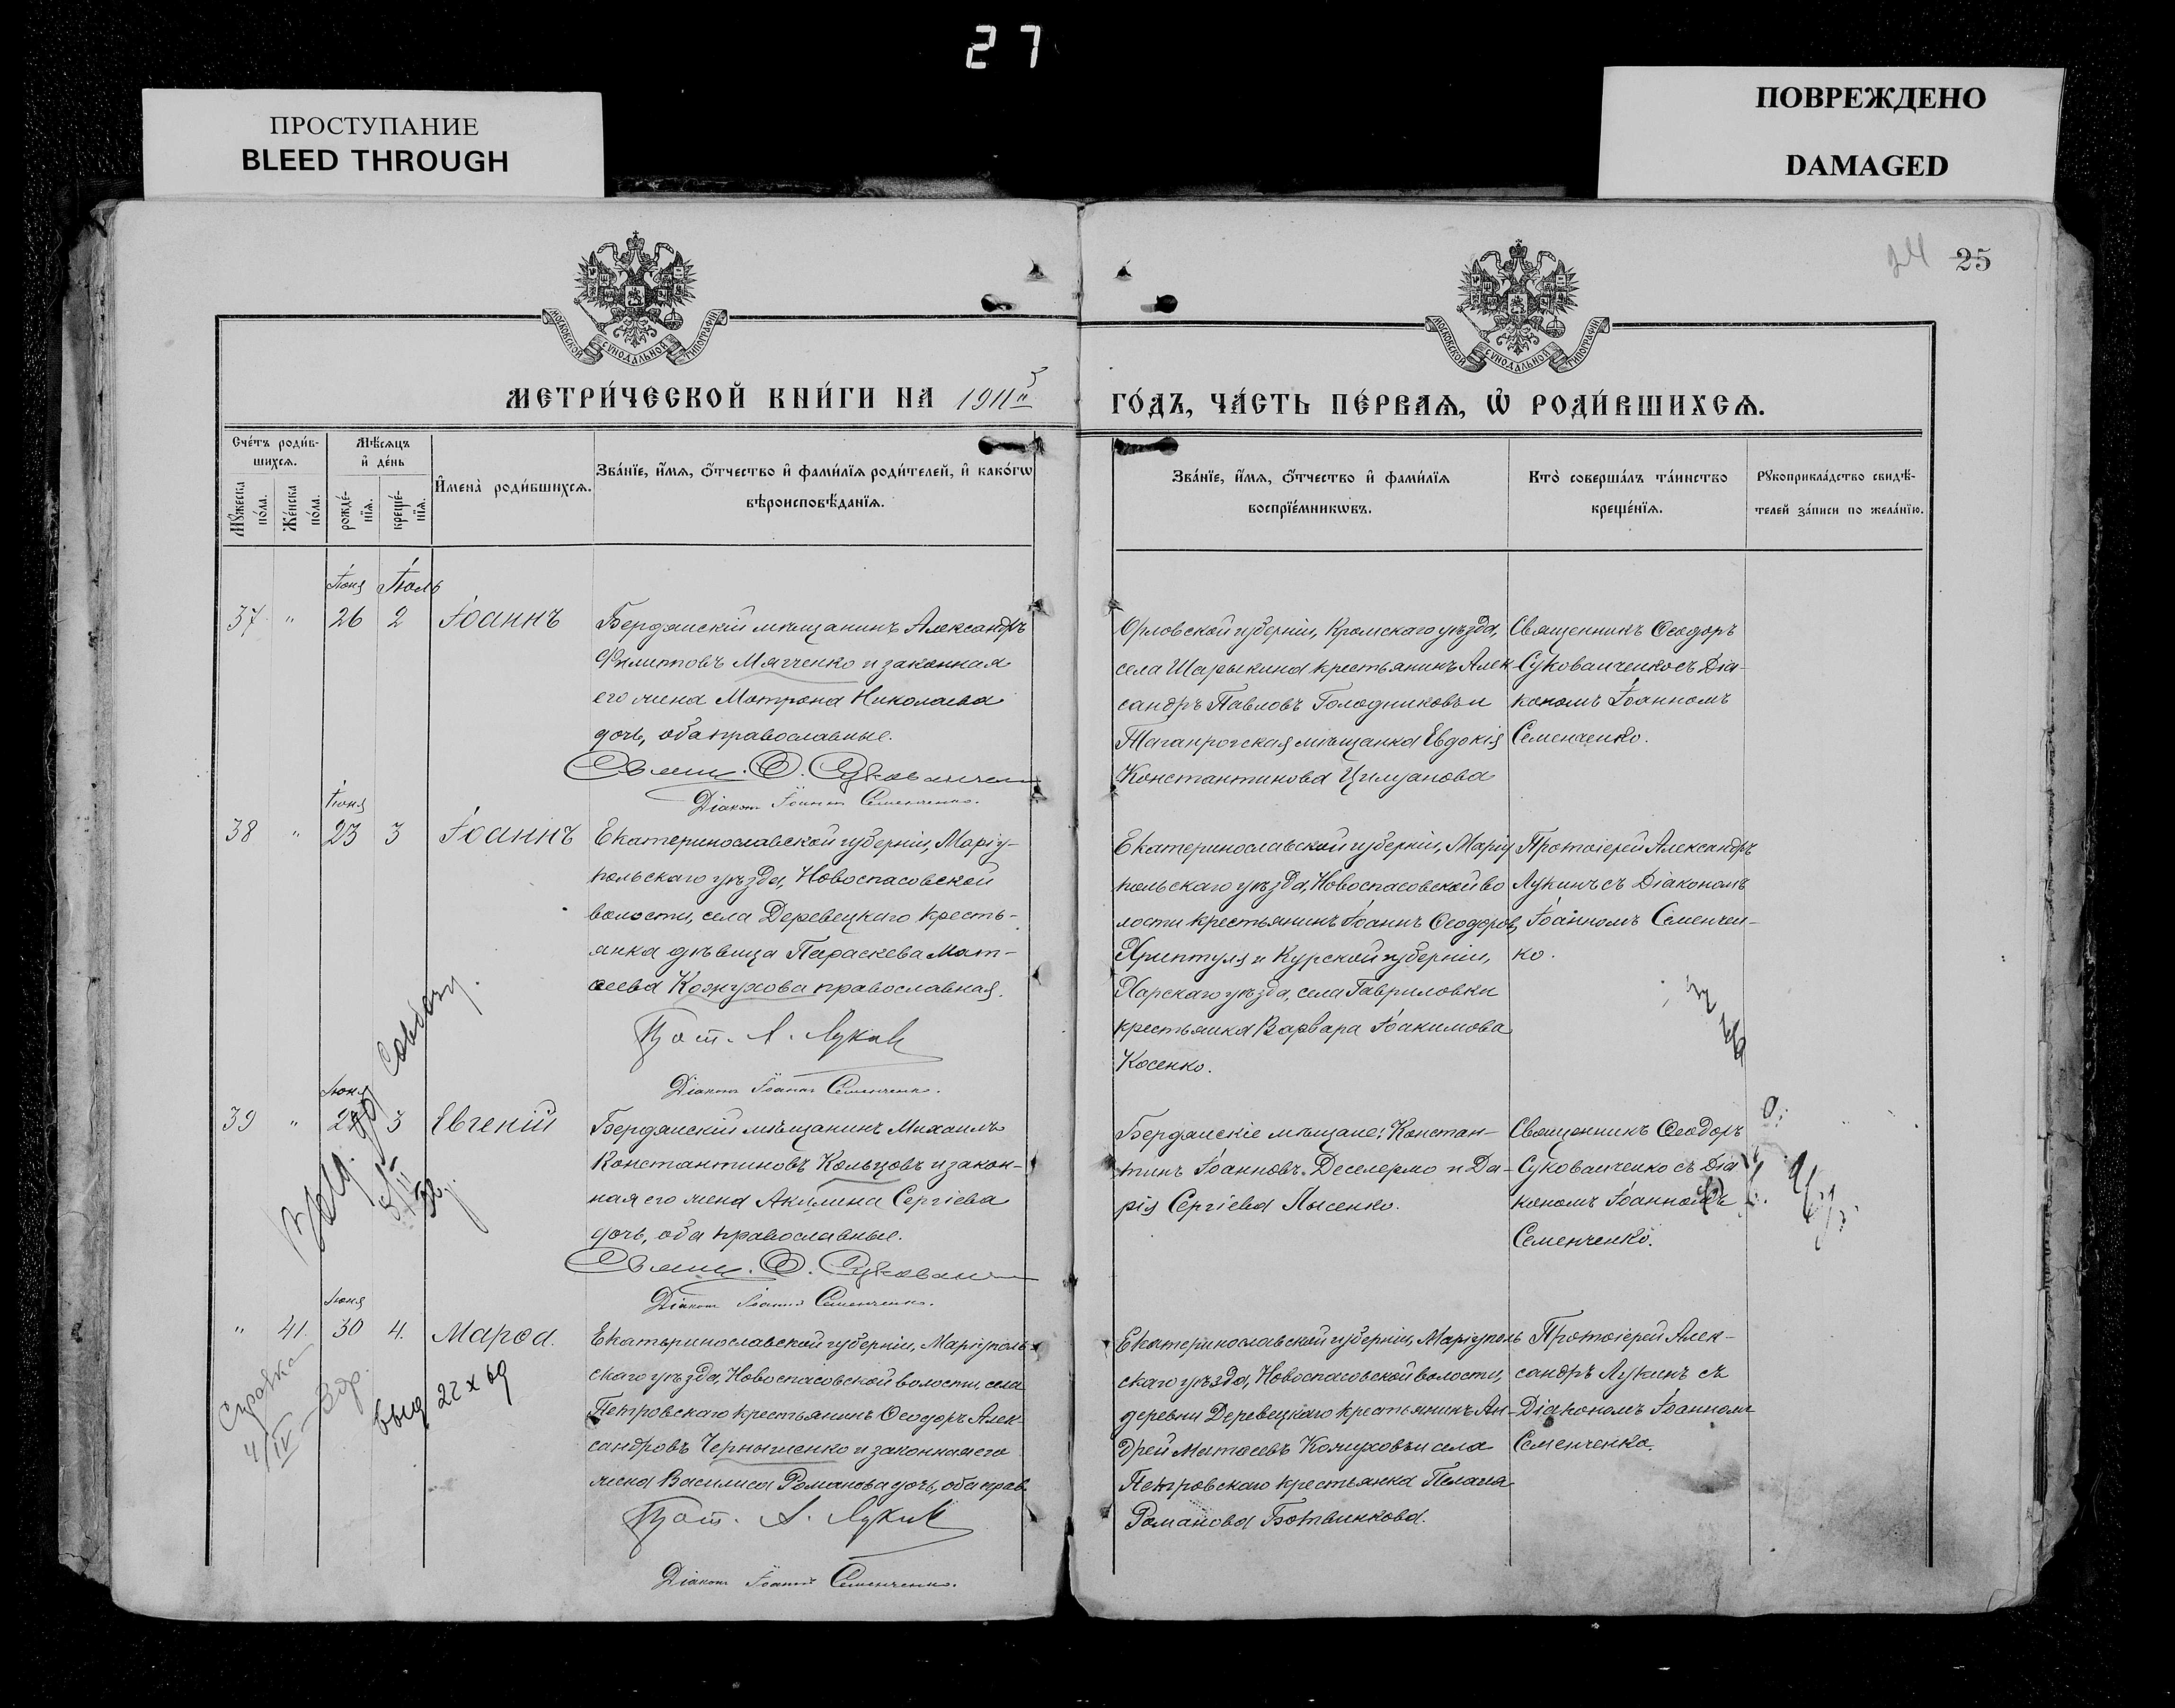 27
ПРОСТУПАНИЕ
BLEED THROUGH
ПОВРЕЖДЕНО
DAMAGED
24 25
МОСКОВСКОЙ СѴНОДАЛЬНОЙ ТИПОГРАФІИ
МОСКОВСКОЙ СѴНОДАЛЬНОЙ ТИПОГРАФІИ
МЕТРИ́ЧЕСКОЙ КНИ́ГИ НА 1911
ГО́ДЪ, ЧА́СТЬ ПЕ́РВАѦ, Ѡ҆ РОДИ́ВШИХСѦ.
Сче́тъ роди́в-
шихсѧ.
Мꙋ́жеска по́ла.
Же́нска по́ла.
Мѣ́сѧцъ
и҆ де́нь
рожде́-
нїѧ.
креще́-
нїѧ.
И҆мена̀ роди́вшихсѧ.
Зва́нїе, и҆́мѧ, ѻ҆́тчество и҆ фами́лїѧ роди́телей, и҆ како́гѡ
вѣроисповѣ́данїѧ.
Зва́нїе, и҆́мѧ, ѻ҆́тчество и҆ фами́лїѧ
воспрїе́мникѡвъ.
Кто̀ соверша́лъ та́инство
креще́нїѧ.
Рꙋкоприкла́дство свидѣ́-
телей за́писи по жела́нїю.
Іюня Іюль
37 " 26 2 Іоаннъ
Бердянскій мѣщанинъ Александръ
Филиповъ Мягченко и законная
его жена Матрона Николаева
дочь, оба православные.
Свящ. Ѳ. Сукованчен
Діаконъ Іоаннъ Семенченко.
Орловской губерніи, Кромскаго уѣзда,
села Шарыкина крестьянинъ Алек-
сандръ Павловъ Голодниковъ и
Таганрогская мѣщанка Евдокія
Константинова Цилуанова
Священникъ Ѳеодоръ
Сукованченко съ Діа-
кономъ Іоанномъ
Семенченко.
Іюня
38 " 23 3 Іоаннъ
Екатеринославской губерніи, Маріу-
польскаго уѣзда, Новоспасовской
волости, села Деревецкаго кресть-
янка дѣвица Параскева Мат-
ѳеева Кожухова православная.
Прот. А. Лукин
Діаконъ Іоаннъ Семенченко.
Екатеринославской губерніи, Маріу
польскаго уѣзда, Новоспасовской во
лости крестьянинъ Іоаннъ Ѳеодоровъ
Хриптуля и Курской губерніи,
уѣзда, села Гавриловки
крестьянка Варвара Іоакимова
Косенко.
Протоіерей Александръ
Лукинъ съ Діакономъ
Іоанномъ Семенчен-
ко.
Іюня
39 " 3 Евгеній
Бердянскій мѣщанинъ Михаилъ
Константиновъ Кольцовъ и закон-
ная его жена Акилина Сергіева
дочь, оба православные.
Свящ. Ѳ. Сукован
Діаконъ Іоаннъ Семенченко.
Бердянскіе мѣщане: Констан-
тинъ Іоанновъ Деселермо и Да-
рія Сергіева Лысенко.
Священникъ Ѳеодоръ
Сукованченко съ Діа
кономъ Іоанномъ
Семенченко.
Іюня
" 41. 30 4. Марѳа.
Екатеринославской губерніи, Маріуполь-
скаго уѣзда, Новоспасовской волости, села
Петровскаго крестьянинъ Ѳеодоръ Алек-
сандровъ Чернышенко и законная его
жена Василиса Романова дочь, оба прав.
Прот. А. Лукин
Діаконъ Іоаннъ Семенченко.
Екатеринославской губерніи, Маріуполь
скаго уѣзда, Новоспасовской волости,
деревни Деревецкаго крестьянинъ Ан-
дрей Матѳеевъ Кожуховъ и села
Петровскаго крестьянка Пелагія
Романова Ботвинкова.
Протоіерей Алек-
сандръ Лукинъ съ
Діакономъ Іоанномъ
Семенченко.
Справка
4/IV
выд 22 х 69